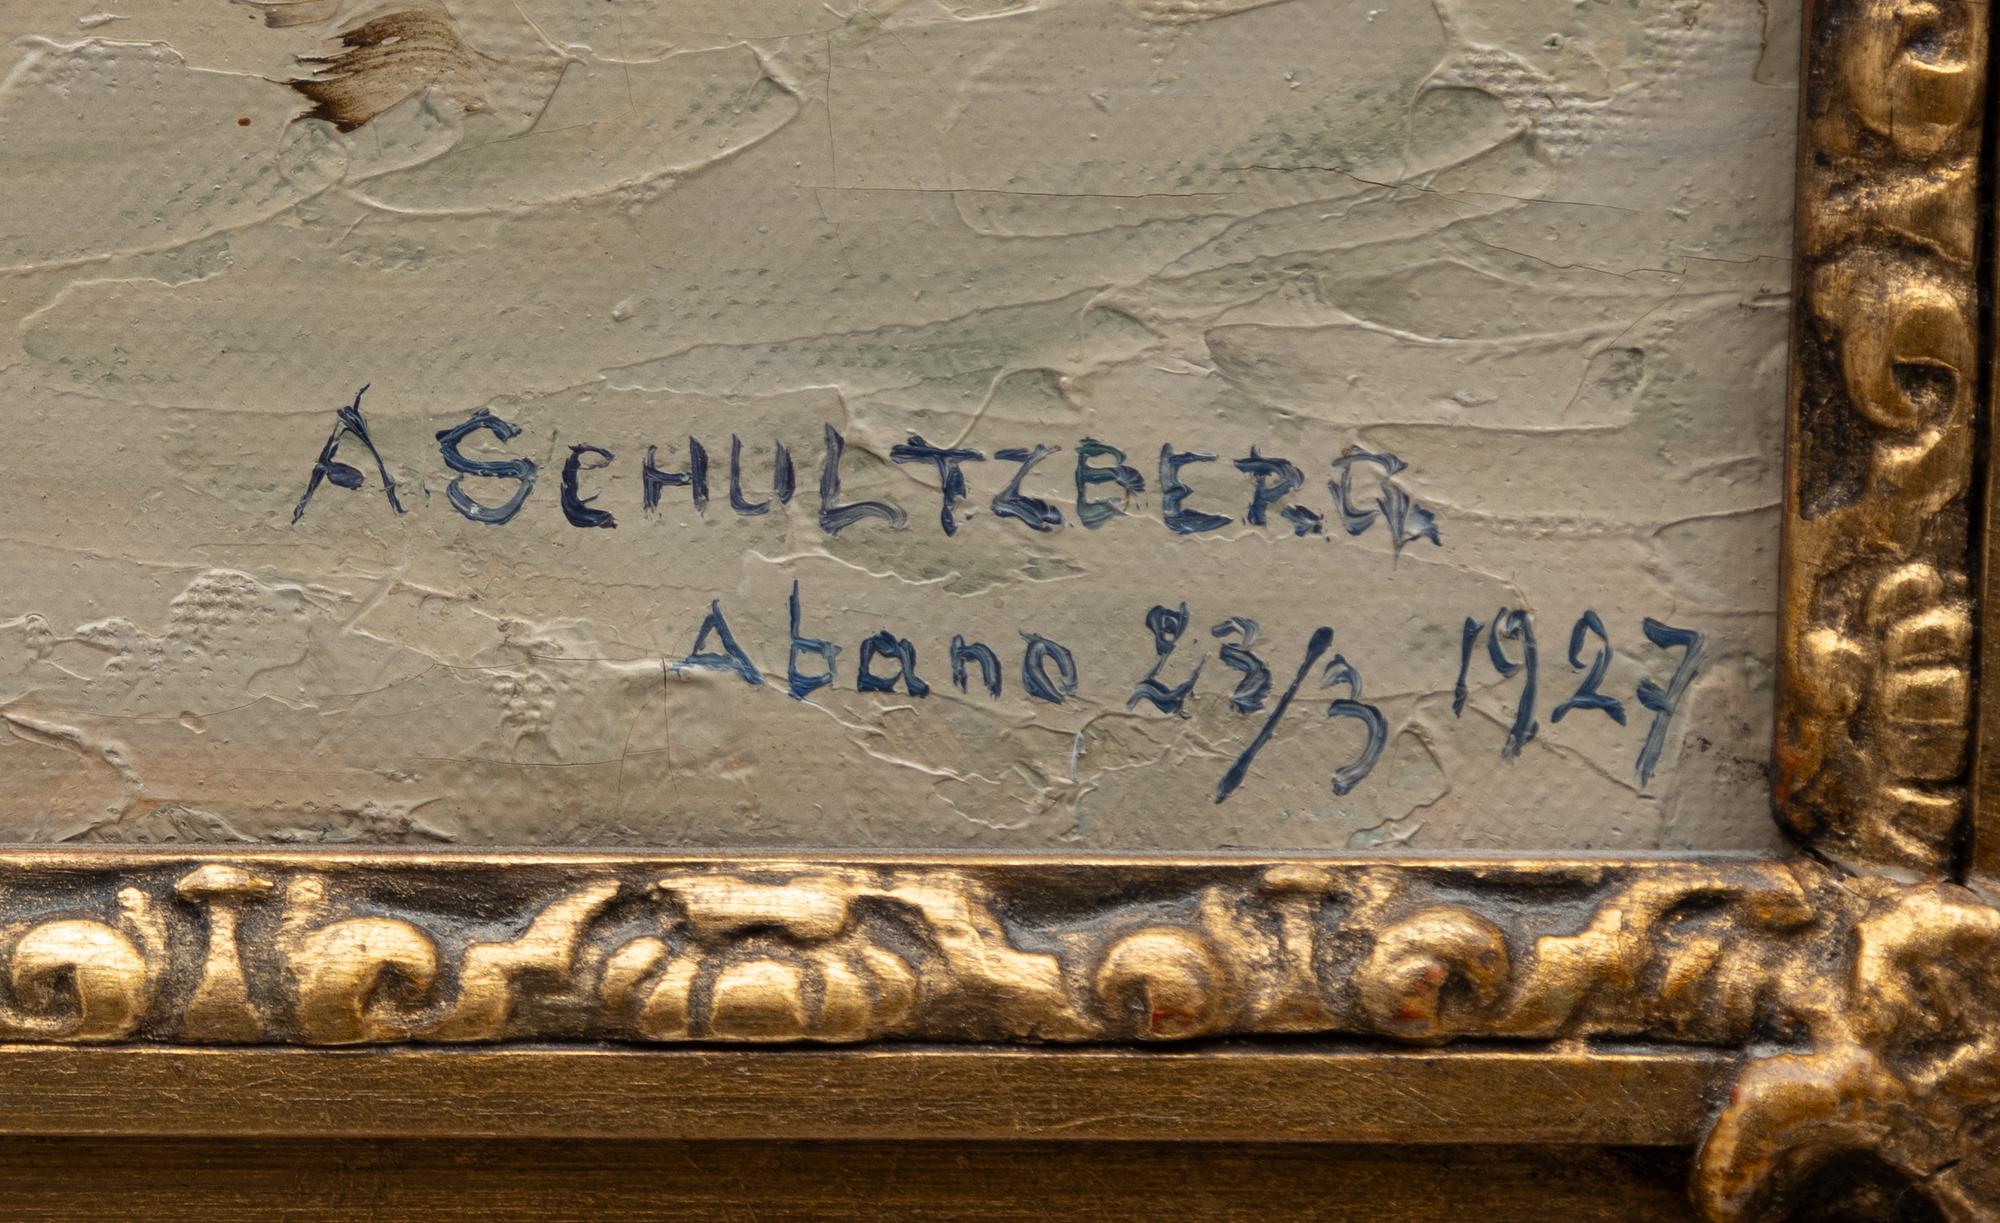 A. SCHULTZBERG
Abano 23/3 1927